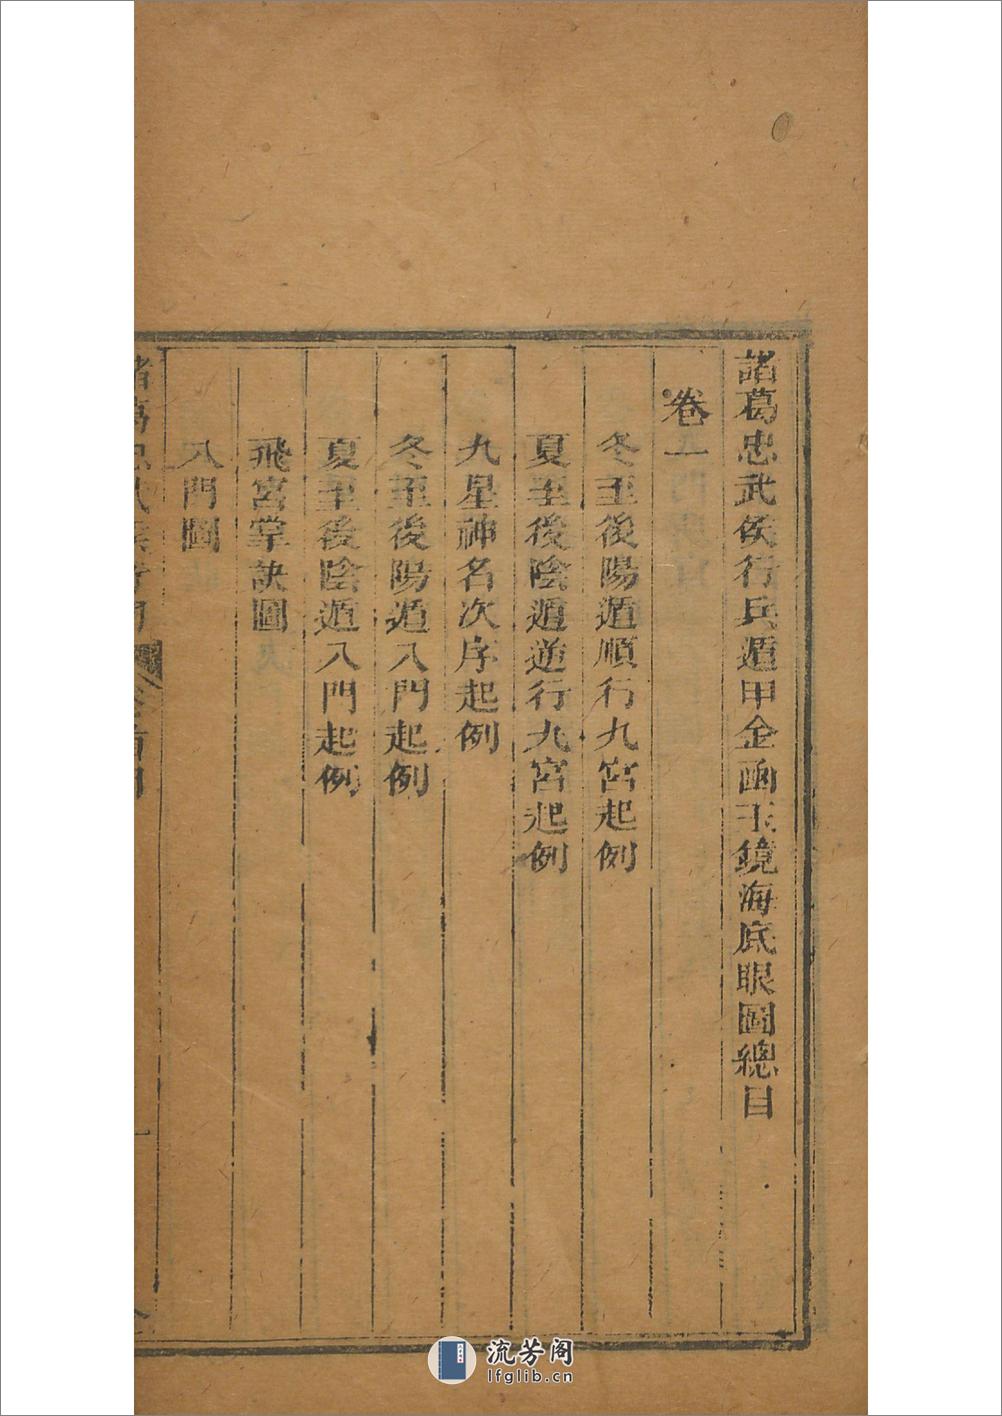 諸葛忠武侯行兵遁甲金函玉鏡海底眼圖總目
卷一
冬至後陽遁順行九宮起例
夏至後陰遁逆行九宮起例
九星神名次序起例
冬至後陽遁八門起例
夏至後陰遁八門起例
飛宮掌訣圖
八門圖
流芳阁
lfglib.cn